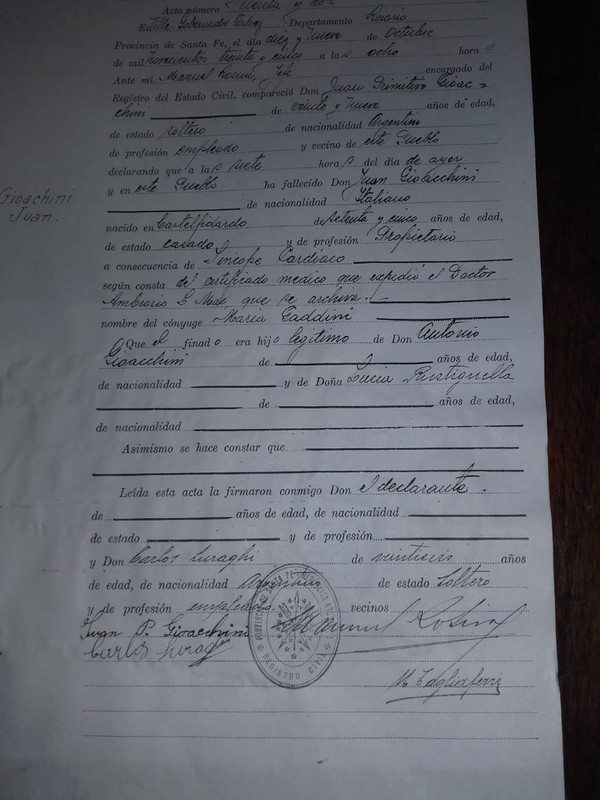 Acta número
En Villa Gobernador Galvez Departamento Rosario
Provincia de Santa Fe, el día diez y nueve de Octubre
de mil novecientos treinta y cinco a las ocho hora
Ante mi Manuel Jefe encargado del
Registro del Estado Civil, compareció Don Juan Primitivo Gioac-
chini de veinte y nueve años de edad,
de estado soltero de nacionalidad Argentino
de profesión empleado y vecino de este Pueblo
declarando que a las siete horas del día de ayer
Gioachini
Juan.
y en este Pueblo ha fallecido Don Juan Gioacchini
de nacionalidad Italiano
nacido en Castelfidardo de setenta y cinco años de edad,
de estado casado y de profesión Propietario
a consecuencia de Sincope Cardiaco
según consta del certificado medico que expidió el Doctor
Ambrosio que se archiva.
nombre del cónyuge Maria Taddini
Que el finado era hijo legitimo de Don Antonio
Gioacchini de años de edad,
de nacionalidad y de Doña Lucia
de años de edad,
de nacionalidad
Asimismo se hace constar que
Leída esta acta la firmaron conmigo Don el declarante.
de años de edad, de nacionalidad
de estado y de profesión
y Don Carlos de veintiseis años
de edad, de nacionalidad Argentino de estado soltero
y de profesión empleado vecinos
Juan P. Gioacchini Manuel
Carlos
REGISTRO
M. Tagliaferri